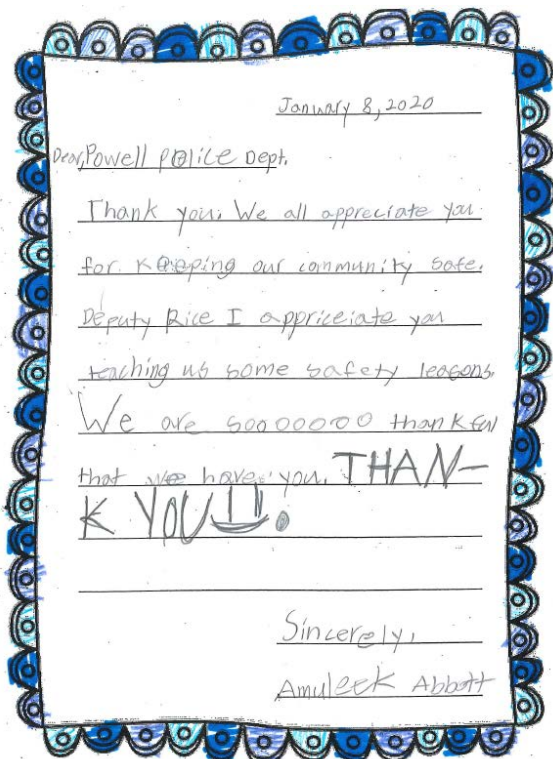 January 8, 2020
Dear, Powell police Dept.
Thank you. We all appreciate you
for keeping our community safe.
Deputy Rice I appriceiate you
teaching us some safety leasons.
We are soooooooo thankful
that we have you. THAN-
K YOU!!.
Sincerely,
Amuleek Abbott